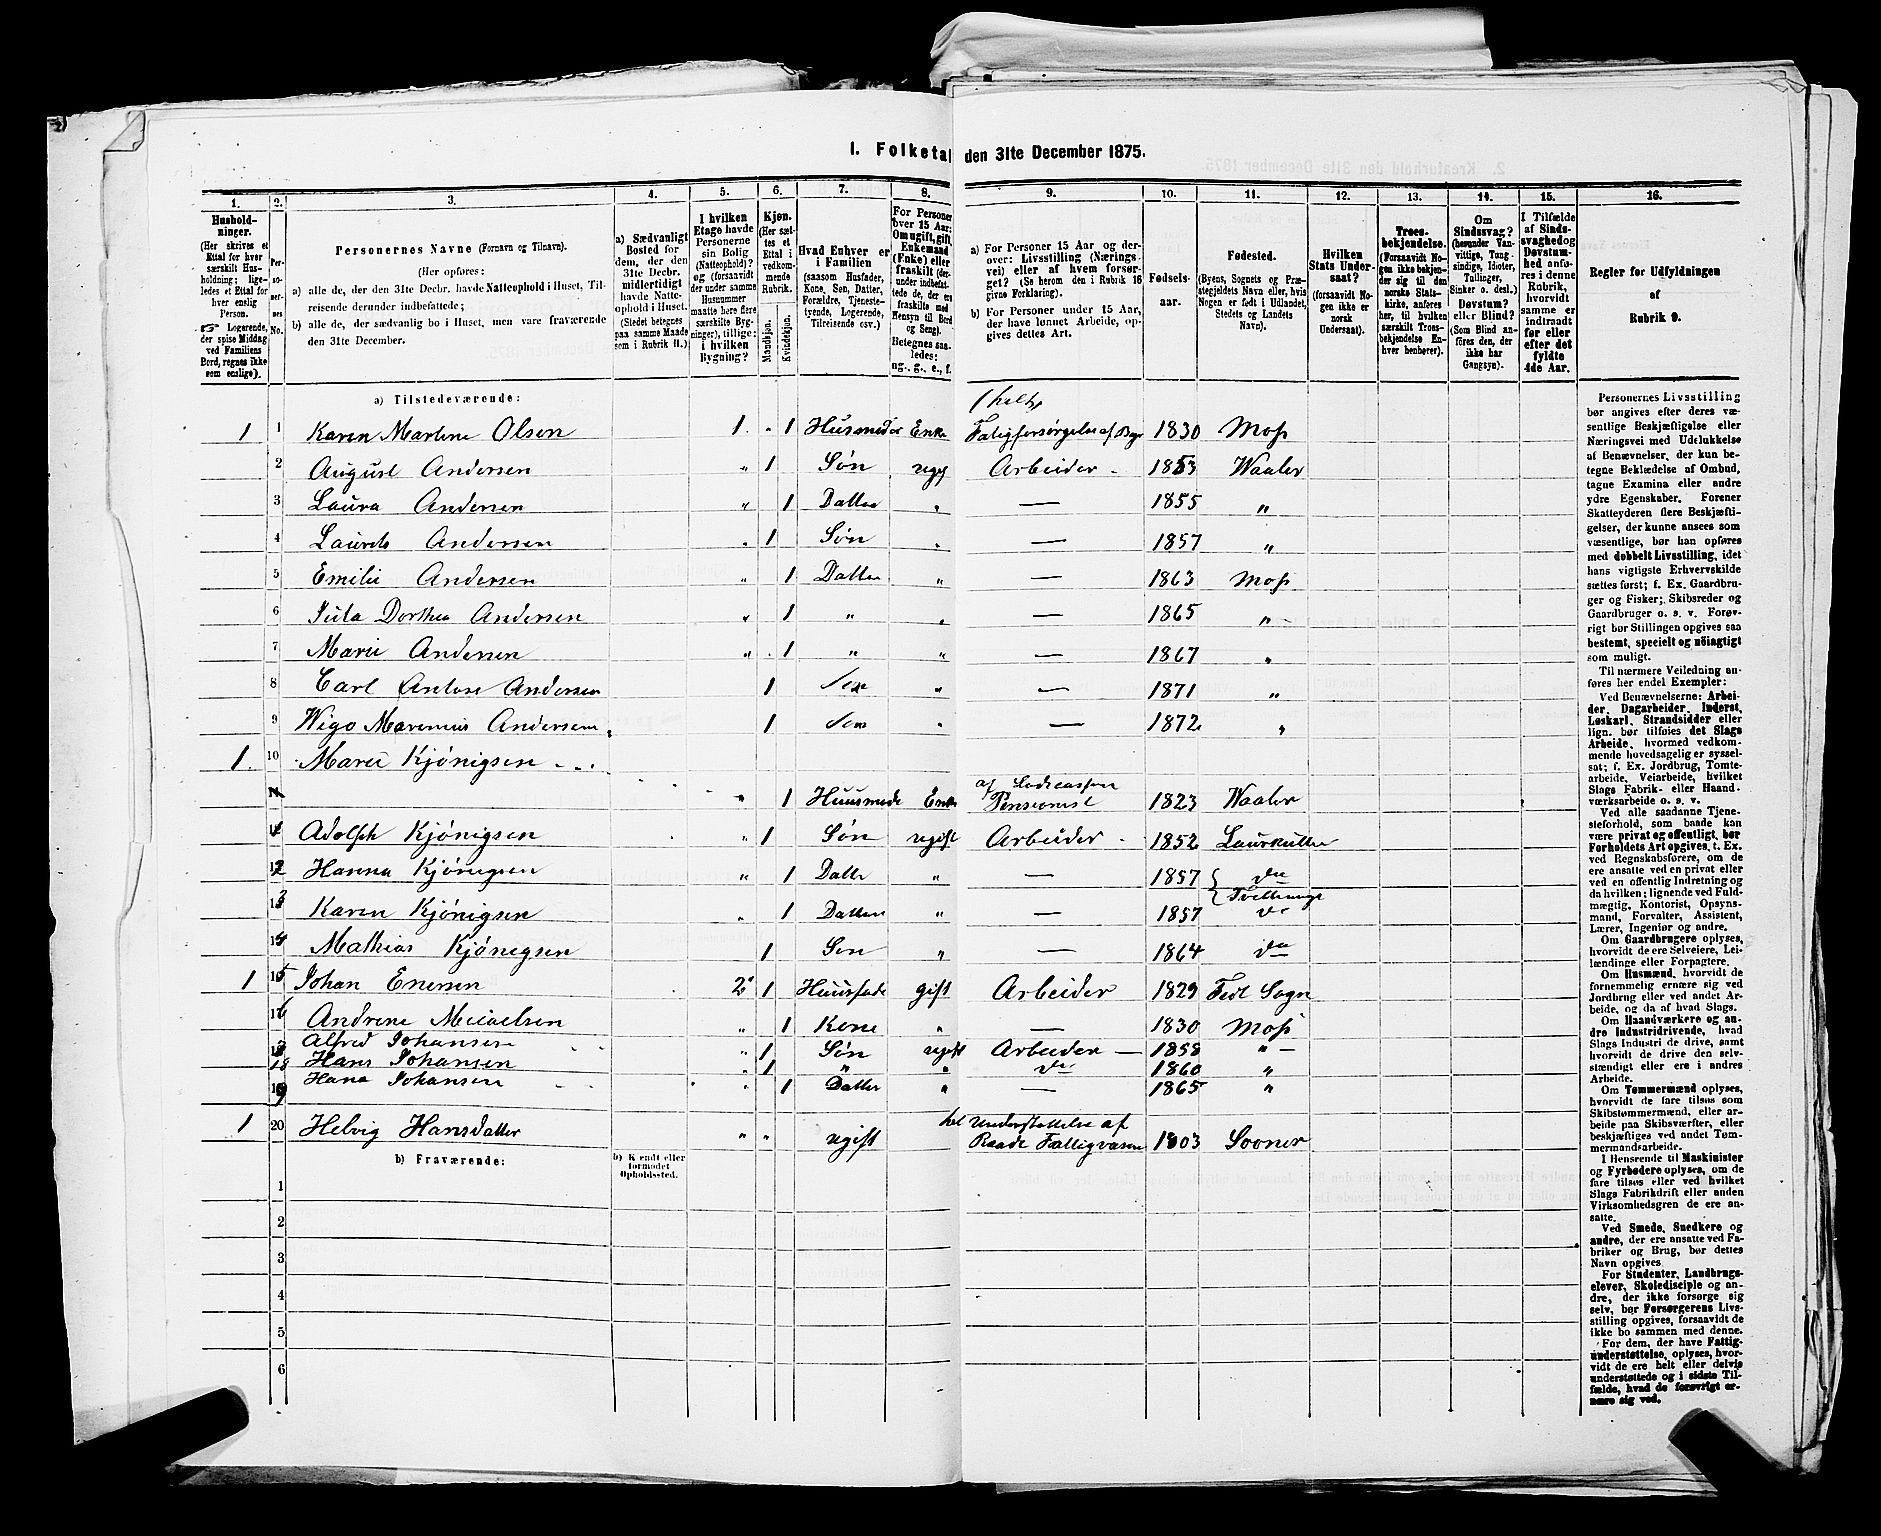 1. Folketal den 31te December 1875.
1. 2. 3. 4. 5. 6. 7. 8. 9. 10. 11. 12. 13. 14. 15. 16.
Husholdninger.
(Her skrives et Ettal for hver særskilt Husholdning; ligeledes et Ettal for hver enslig Person.
☞ Logerende, der spise Middag ved Familiens Bord, regnes ikke som enslige).
Personernes No.
Personernes Navne (Fornavn og Tilnavn).
(Her opføres:
a) alle de, der den 31te Decbr. havde Natteophold i Huset, Tilreisende derunder indbefattede;
b) alle de, der sædvanlig bo i Huset, men vare fraværende den 31te December.
a) Sædvanligt Bosted for dem, der den 31te Decbr. midlertidigt havde Natteophold i Huset.
(Stedet betegnes paa samme Maade som i Rubrik 11.)
I hvilken Etage havde Personerne sin Bolig (Natteophold)? og (forsaavidt der under samme Husnummer maatte høre flere særskilte Bygninger), tillige: i hvilken Bygning?
Kjøn.
(Her sættes et Ettal i vedkommende Rubrik.
Mandkjøn. Kvindekjøn.
Hvad Enhver er i Familien
(saasom Husfader, Kone, Søn, Datter, Forældre, Tjenestetyende, Logerende, Tilreisende osv.)
For Personer over 15 Aar: Om ugift, gift, Enkemand (Enke) eller fraskilt
Betegnes saaledes: ug., g., e., f.
a) For Personer 15 Aar og derover: Livsstilling (Næringsvei) eller af hvem forsørget? (Se herom den i Rubrik 16 givne Forklaring).
b) For Personer under 15 Aar, der have lønnet Arbeide, opgives dettes Art.
Fødselsaar.
Fødested.
(Byens, Sognets og Præstegjeldets Navn eller, hvis Nogen er født i Udlandet, Stedets og Landets Navn).
Hvilken Stats Undersaat?
(forsaavidt Nogen ikke er norsk Undersaat).
Troesbekjendelse.
(Forsaavidt Nogen ikke bekjender sig til den norske Statskirke, anføres her, til hvilken særskilt Troesbekjendelse Enhver henhører).
Om Sindssvag? (herunder Vanvittige, Tungsindige, Idioter, Tullinger, Sinker o. desl.) Døvstum? eller Blind?
(Som Blind anføres den, der ikke har Gangsyn).
I Tilfælde af Sindssvaghed og Døvstumhed anføres i denne Rubrik, hvorvidt samme er indtraadt før eller efter det fyldte 4de Aar.
Regler for Udfyldningen af Rubrik 9.
a) Tilstedeværende:
(helt)
1 1 Karen Martene Olsen 1. 1 Husmoder Enke Fatigforsørgelse af Bye 1830 Moss
2 August Andersen „ 1 Søn ugift Arbeider - 1853 Waaler
3 Laura Andersen „ 1 Datter „ — 1855 „
4 Laurits Andersen „ 1 Søn „ — 1857 „
5 Emilie Andersen „ 1 Datter „ — 1863 Moss
6 Dorthea Andersen „ 1 „ „ — 1865 „
7 Marie Andersen „ 1 „ „ — 1867 „
8 Carl Andersen 1 Søn „ — 1871 „
9 Wigo Marenius Andersen 1 Søn „ — 1872 „
1. 10 Marie Kjønigsen
„ 1 Huusmode Enke af Pensionist 1823 Waaler
11 Adolph Kjønigsen „ 1 Søn ugift Arbeider - 1852 Laurkullen
12 Hanna Kjønigsen „ 1 Datte „ — 1857 do
13 Karen Kjønigsen „ 1 Datter „ — 1857 Tvillinge do
14 Mathias Kjønegsen 1 Søn „ — 1864 do
1 15 Johan Enersen 2 1 Huusfade gift Arbeider 1829 Sogn
16 Andrene Micaelsen „ 1 Kone „ — 1830 Moss
17 Alfred Johansen „ 1 Søn ugift Arbeider — 1858 „
18 Hans Johansen „ 1 „ „ do 1860 „
19 Hana Johansen „ 1 Datter „ — 1865 „
1 20 Helvig Hansdatter „ „ ugift hel Understøttelse af Raade Fattigvæsen 1803 Sooner
b) Fraværende:
b) Kjendt eller formodet Opholdssted.
1
2
3
4
5
6
Personernes Livsstilling bør angives efter deres væsentlige Beskjæftigelse eller Næringsvei med Udelukkelse af Benævnelser, der kun betegne Beklædelse af Ombud, tagne Examina eller andre ydre Egenskaber. Forener Skatteyderen flere Beskjæftigelser, der kunne ansees som væsentlige, bør han opføres med dobbelt Livsstilling, idet hans vigtigste Erhvervskilde sættes først; f. Ex. Gaardbruger og Fisker; Skibsreder og Gaardbruger o. s. v. Forøvrigt bør Stillingen opgives saa bestemt, specielt og nöiagtigt som muligt.
Til nærmere Veiledning anføres her endel Exempler:
Ved Benævnelserne: Arbeider, Dagarbeider, Inderst, Løskarl, Strandsidder eller lign. bør tilføies det Slags Arbeide, hvormed vedkommende hovedsagelig er sysselsat; f. Ex. Jordbrug, Tomtearbeide, Veiarbeide, hvilket Slags Fabrik- eller Haandværksarbeide o. s. v.
Ved alle saadanne Tjenesteforhold, som baade kan være privat og offentligt, bør Forholdets Art opgives, t. Ex. ved Regnskabsførere, om de ere ansatte ved en privat eller ved en offentlig Indretning og da hvilken; lignende ved Fuldmægtig, Kontorist, Opsynsmand, Forvalter, Assistent, Lærer, Ingeniør og andre.
Om Gaardbrugere oplyses, hvorvidt de ere Selveiere, Leilændinge eller Forpagtere.
Om Husmænd, hvorvidt de fornemmelig ernære sig ved Jordbrug eller ved andet Arbeide, og da af hvad Slags.
Om Haandværkere og andre Industridrivende, hvad Slags Industri de drive, samt hvorvidt de drive den selvstændigt eller ere i andres Arbeide.
Om Tømmermænd oplyses, hvorvidt de fare tilsøs som Skibstømmermænd, eller arbeide paa Skibsværfter, eller beskjæftiges ved andet Tømmermandsarbeide.
I Henseende til Maskinister og Fyrbødere oplyses, om de fare tilsøs eller ved hvilket Slags Fabrikdrift eller anden Virksomhedsgren de ere ansatte.
Ved Smede, Snedkere og andre, der ere ansatte ved Fabriker og Brug, bør dettes Navn opgives.
For Studenter, Landbrugselever, Skoledisciple og andre, der ikke forsørge sig selv, bør Forsørgerens Livsstilling opgives, forsaavidt de ikke bo sammen med denne.
For dem, der have Fattigunderstøttelse, oplyses, hvorvidt de ere helt eller delvis understøttede og i sidste Tilfælde, hvad de forøvrigt ernære sig ved.